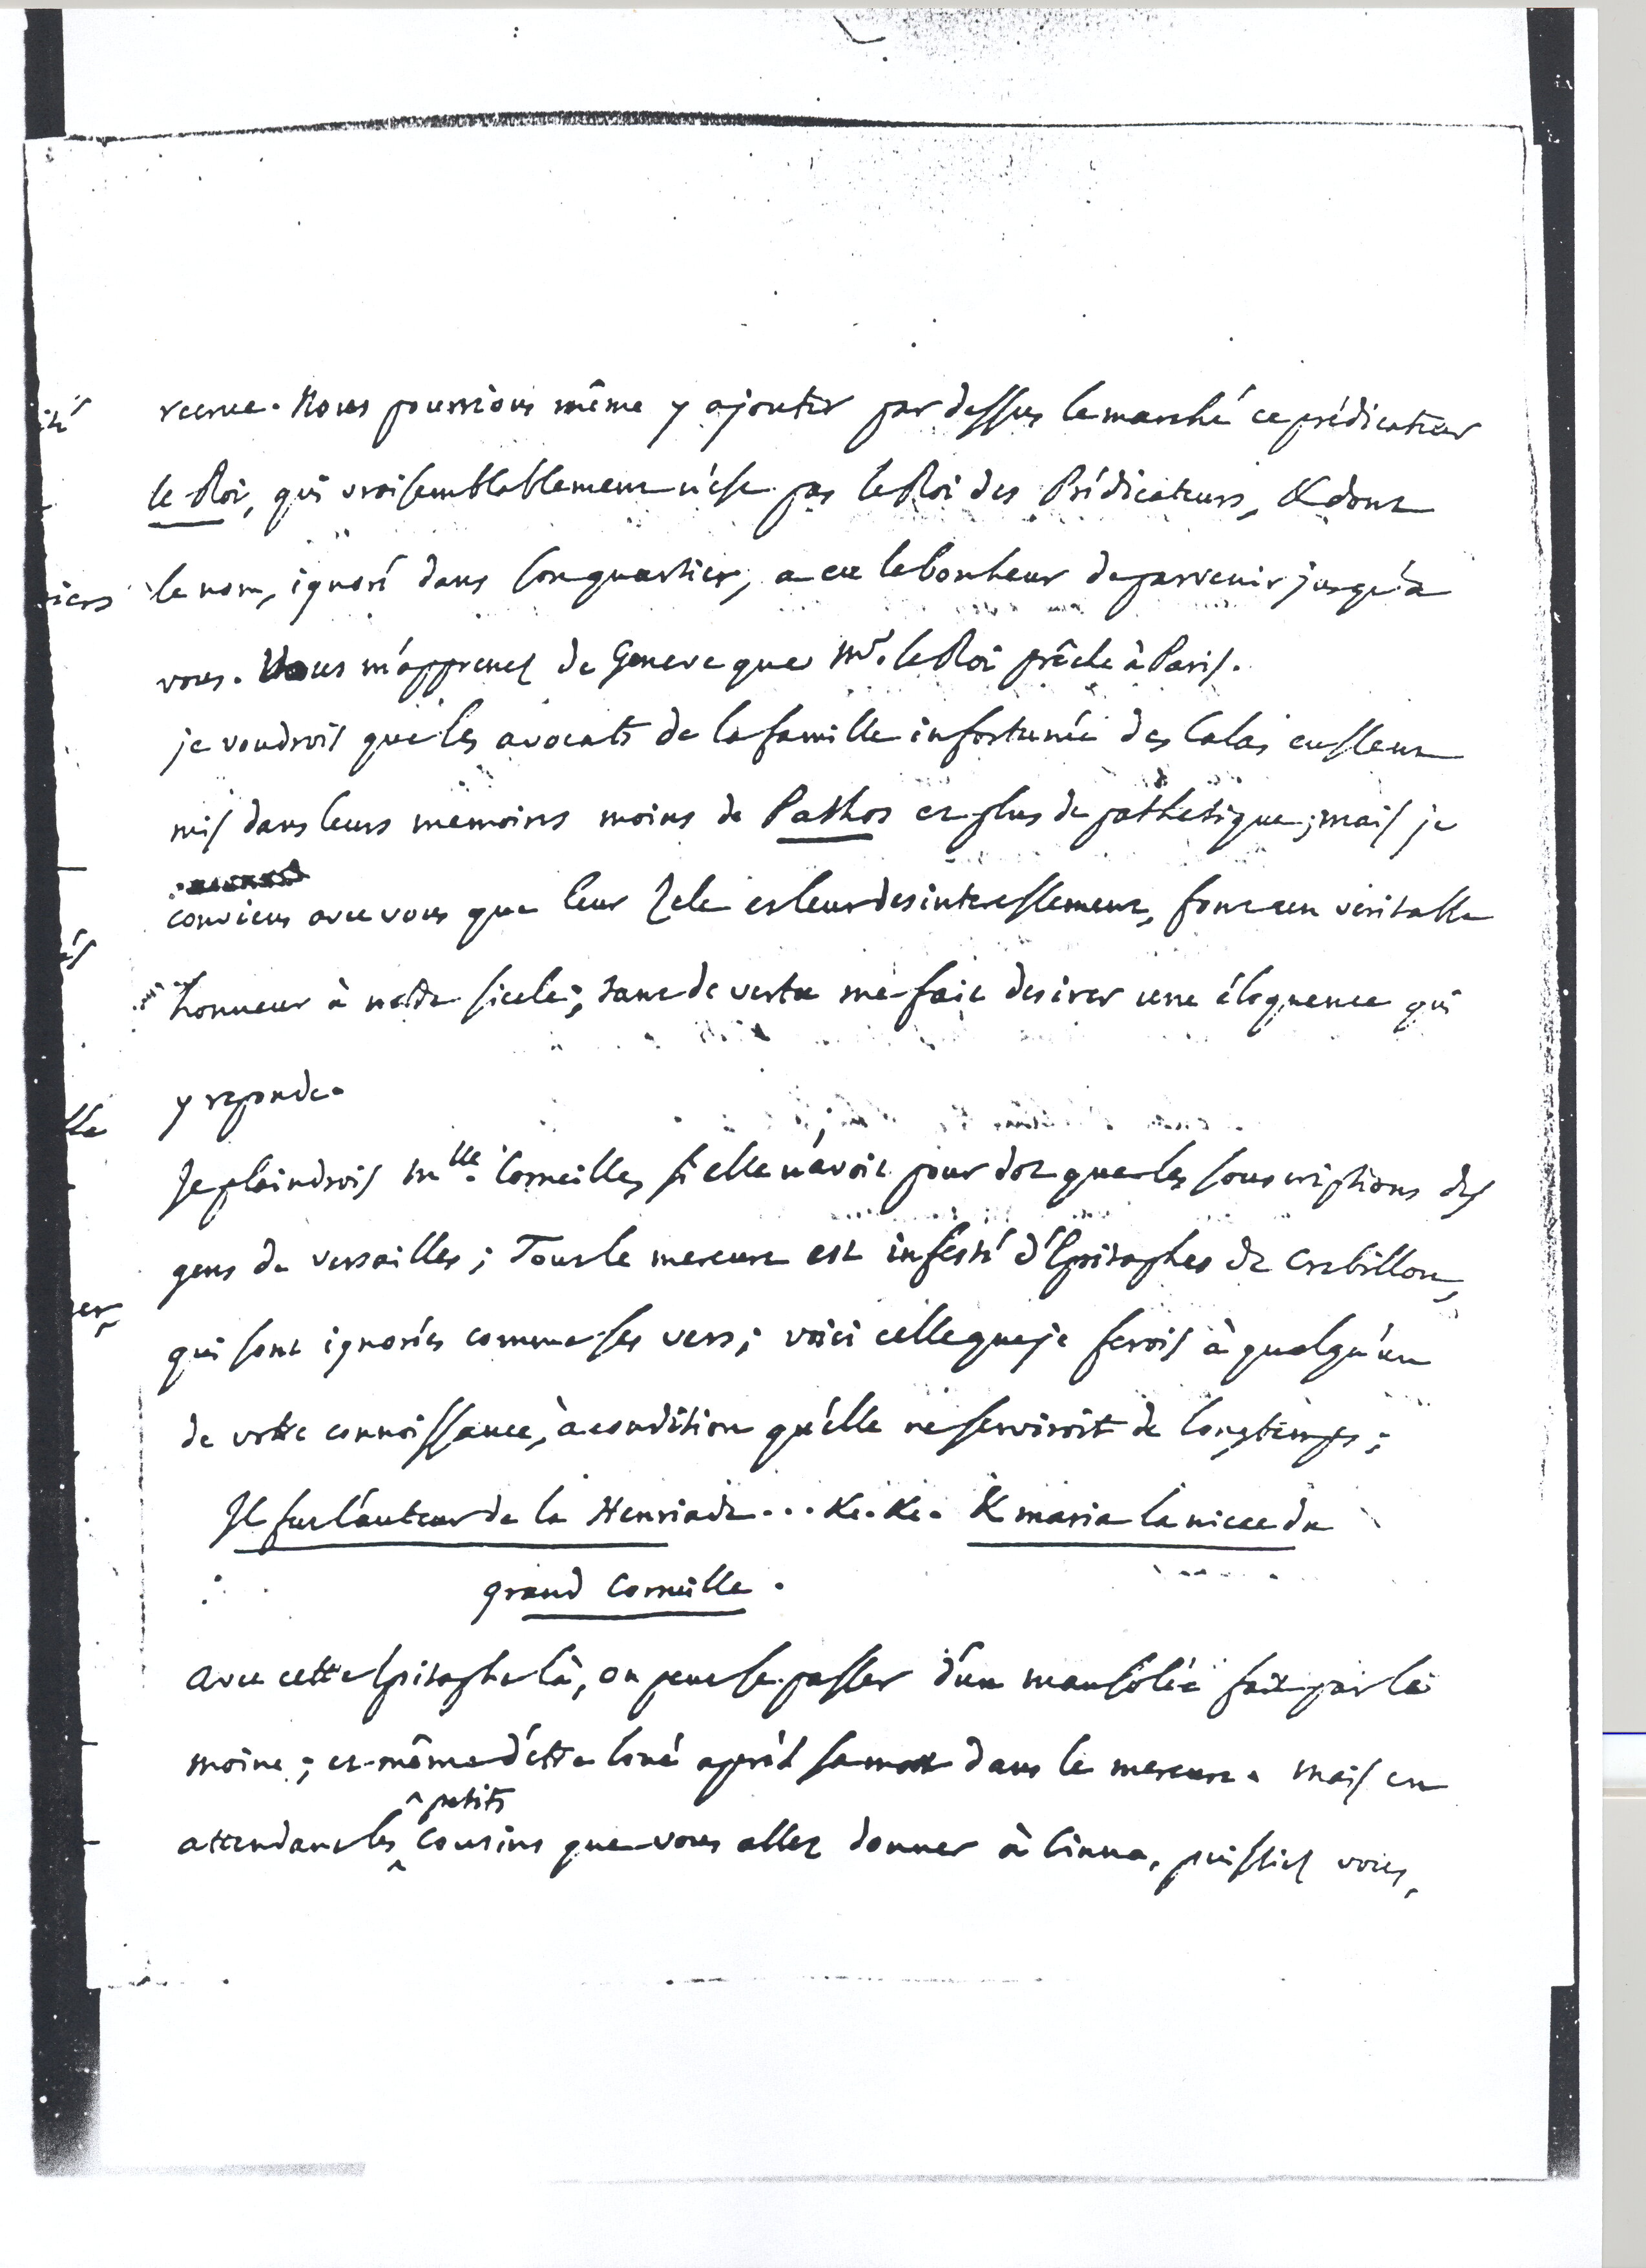 recrue. Nous pourrions même y ajouter par dessus le marché ce prédicateur
le Roi, qui vraisemblablement n'est pas le Roi des Prédicateurs, & dont
le nom, ignoré dans son quartier, a eu le bonheur de parvenir jusqu'à
vous. Vous m'apprenez de Geneve que Mr. le Roi prêche à Paris.
je voudrois que les avocats de la famille infortunée des Calas eussent
mis dans leurs memoires moins de Pathos et plus de pathetique; mais je
conviens avec vous que leur zele et leur desinteressement, font un veritable
honneur à notre siecle; tant de vertu me fait desirer une éloquence qui
y reponde.
Je plaindrois Mlle. Corneille, si elle n'avoit pour dot que les souscriptions des
gens de versailles; Tout le mercure est infesté d'Epitaphes de Crebillon,
qui sont ignorées comme ses vers; voici celle que je ferois à quelqu'un
de votre connoissance, à condition qu'elle ne serviroit de longtemps;
Il fut l'auteur de la Henriade... &c. &c. & maria la niece du
grand Corneille.
avec cette Epitaphe là, on peut se passer d'un mausolée fait par le
moine; et même d'etre loué après sa mort dans le mercure. mais en
petits
attendant les cousins que vous allez donner à Cinna, puissiez vous,